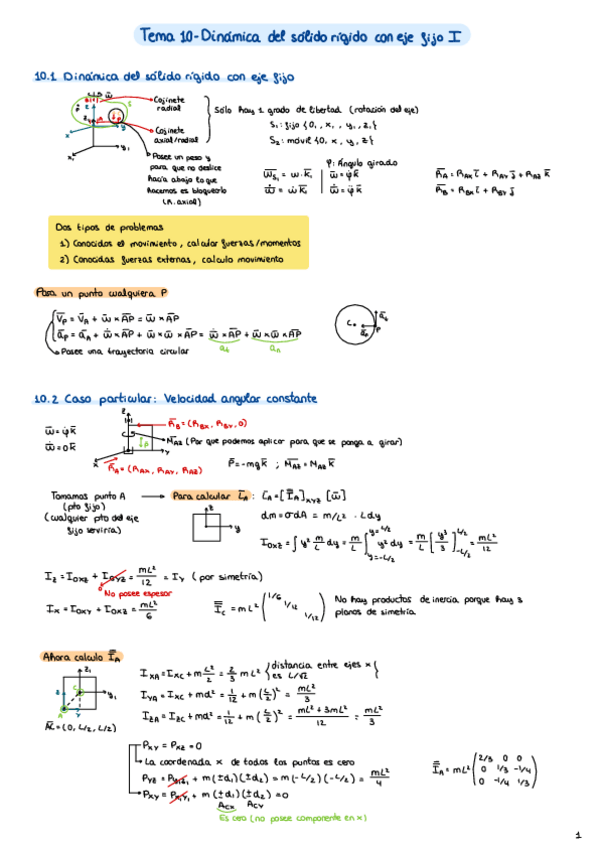 Tema 10-Dinámica del sólido rígido con eje fijo I
10.1 Dinámica del sólido rígido con eje fijo
Cojinete radial
Cojinete axial/radial
Posee un peso y para que no deslice hacia abajo lo que hacemos es bloquearlo (R. axial)
Sólo hay 1 grado de libertad (rotación del eje)
S₁: fijo {0, x₁, y₁, z₁}
S₂: móvil {0, x, y, z}
φ: Ángulo girado
ω̅ = φ̇ k̅
R̅A = RAx i̅ + RAy j̅ + RAz k̅
R̅B = RBx i̅ + RBy j̅
Dos tipos de problemas
1) Conocidos el movimiento, calcular fuerzas/momentos
2) Conocidas fuerzas externas, calculo movimiento
Para un punto cualquiera P
V̅P = V̅A + ω̅ × A̅P̅ = ω̅ × A̅P̅
a̅P = a̅A + ω̅̇ × A̅P̅ + ω̅ × ω̅ × A̅P̅ = ω̅̇ × A̅P̅ + ω̅ × ω̅ × A̅P̅
at
an
Posee una trayectoria circular
10.2 Caso particular: Velocidad angular constante
ω̅ = φ̇ k̅
ω̅̇ = 0 k̅
R̅B = (RBx, RBy, 0)
MAz (Par que podemos aplicar para que se ponga a girar)
R̅A = (RAx, RAy, RAz)
P̅ = -mg k̅ ; M̅Az = MAz k̅
Tomamos punto A (pto fijo)
(cualquier pto del eje fijo serviría)
Para calcular L̅A : LA = [I̿A]xyz [ω̅]
dm = σdA = m/L² · Ldy
IOxz = ∫ y² m/L dy = m/L ∫ y² dy = m/L [y³/3] = mL²/12
y=L/2
y=-L/2
Iz = IOxz + IOyz = mL²/12 = Iy (por simetría)
No posee espesor
Ix = IOxy + IOxz = mL²/6
I̿C = mL² ( 1/6 1/12 1/12 )
No hay productos de inercia porque hay 3 planos de simetría
Ahora calculo I̿A
A̅C̅ = (0, L/2, L/2)
IXA = IXC + m L²/2 = 2/3 mL² (distancia entre ejes x es L/√2)
IYA = IXC + md² = 1/12 + m (L/2)² = mL²/3
IZA = IZC + md² = 1/12 + m (L/2)² = mL² + 3mL²/12 = mL²/3
PXY = PXZ = 0
La coordenada x de todos los puntos es cero
PYZ = PY₁Z₁ + m(±d₁)(±d₂) = m(-L/2)(-L/2) = mL²/4
PXY = PX₁Y₁ + m(±d₁)(±d₂) = 0
ACX ACY
Es cero (no posee componente en x)
I̿A = mL² ( 2/3 0 0
0 1/3 -1/4
0 -1/4 1/3 )
1